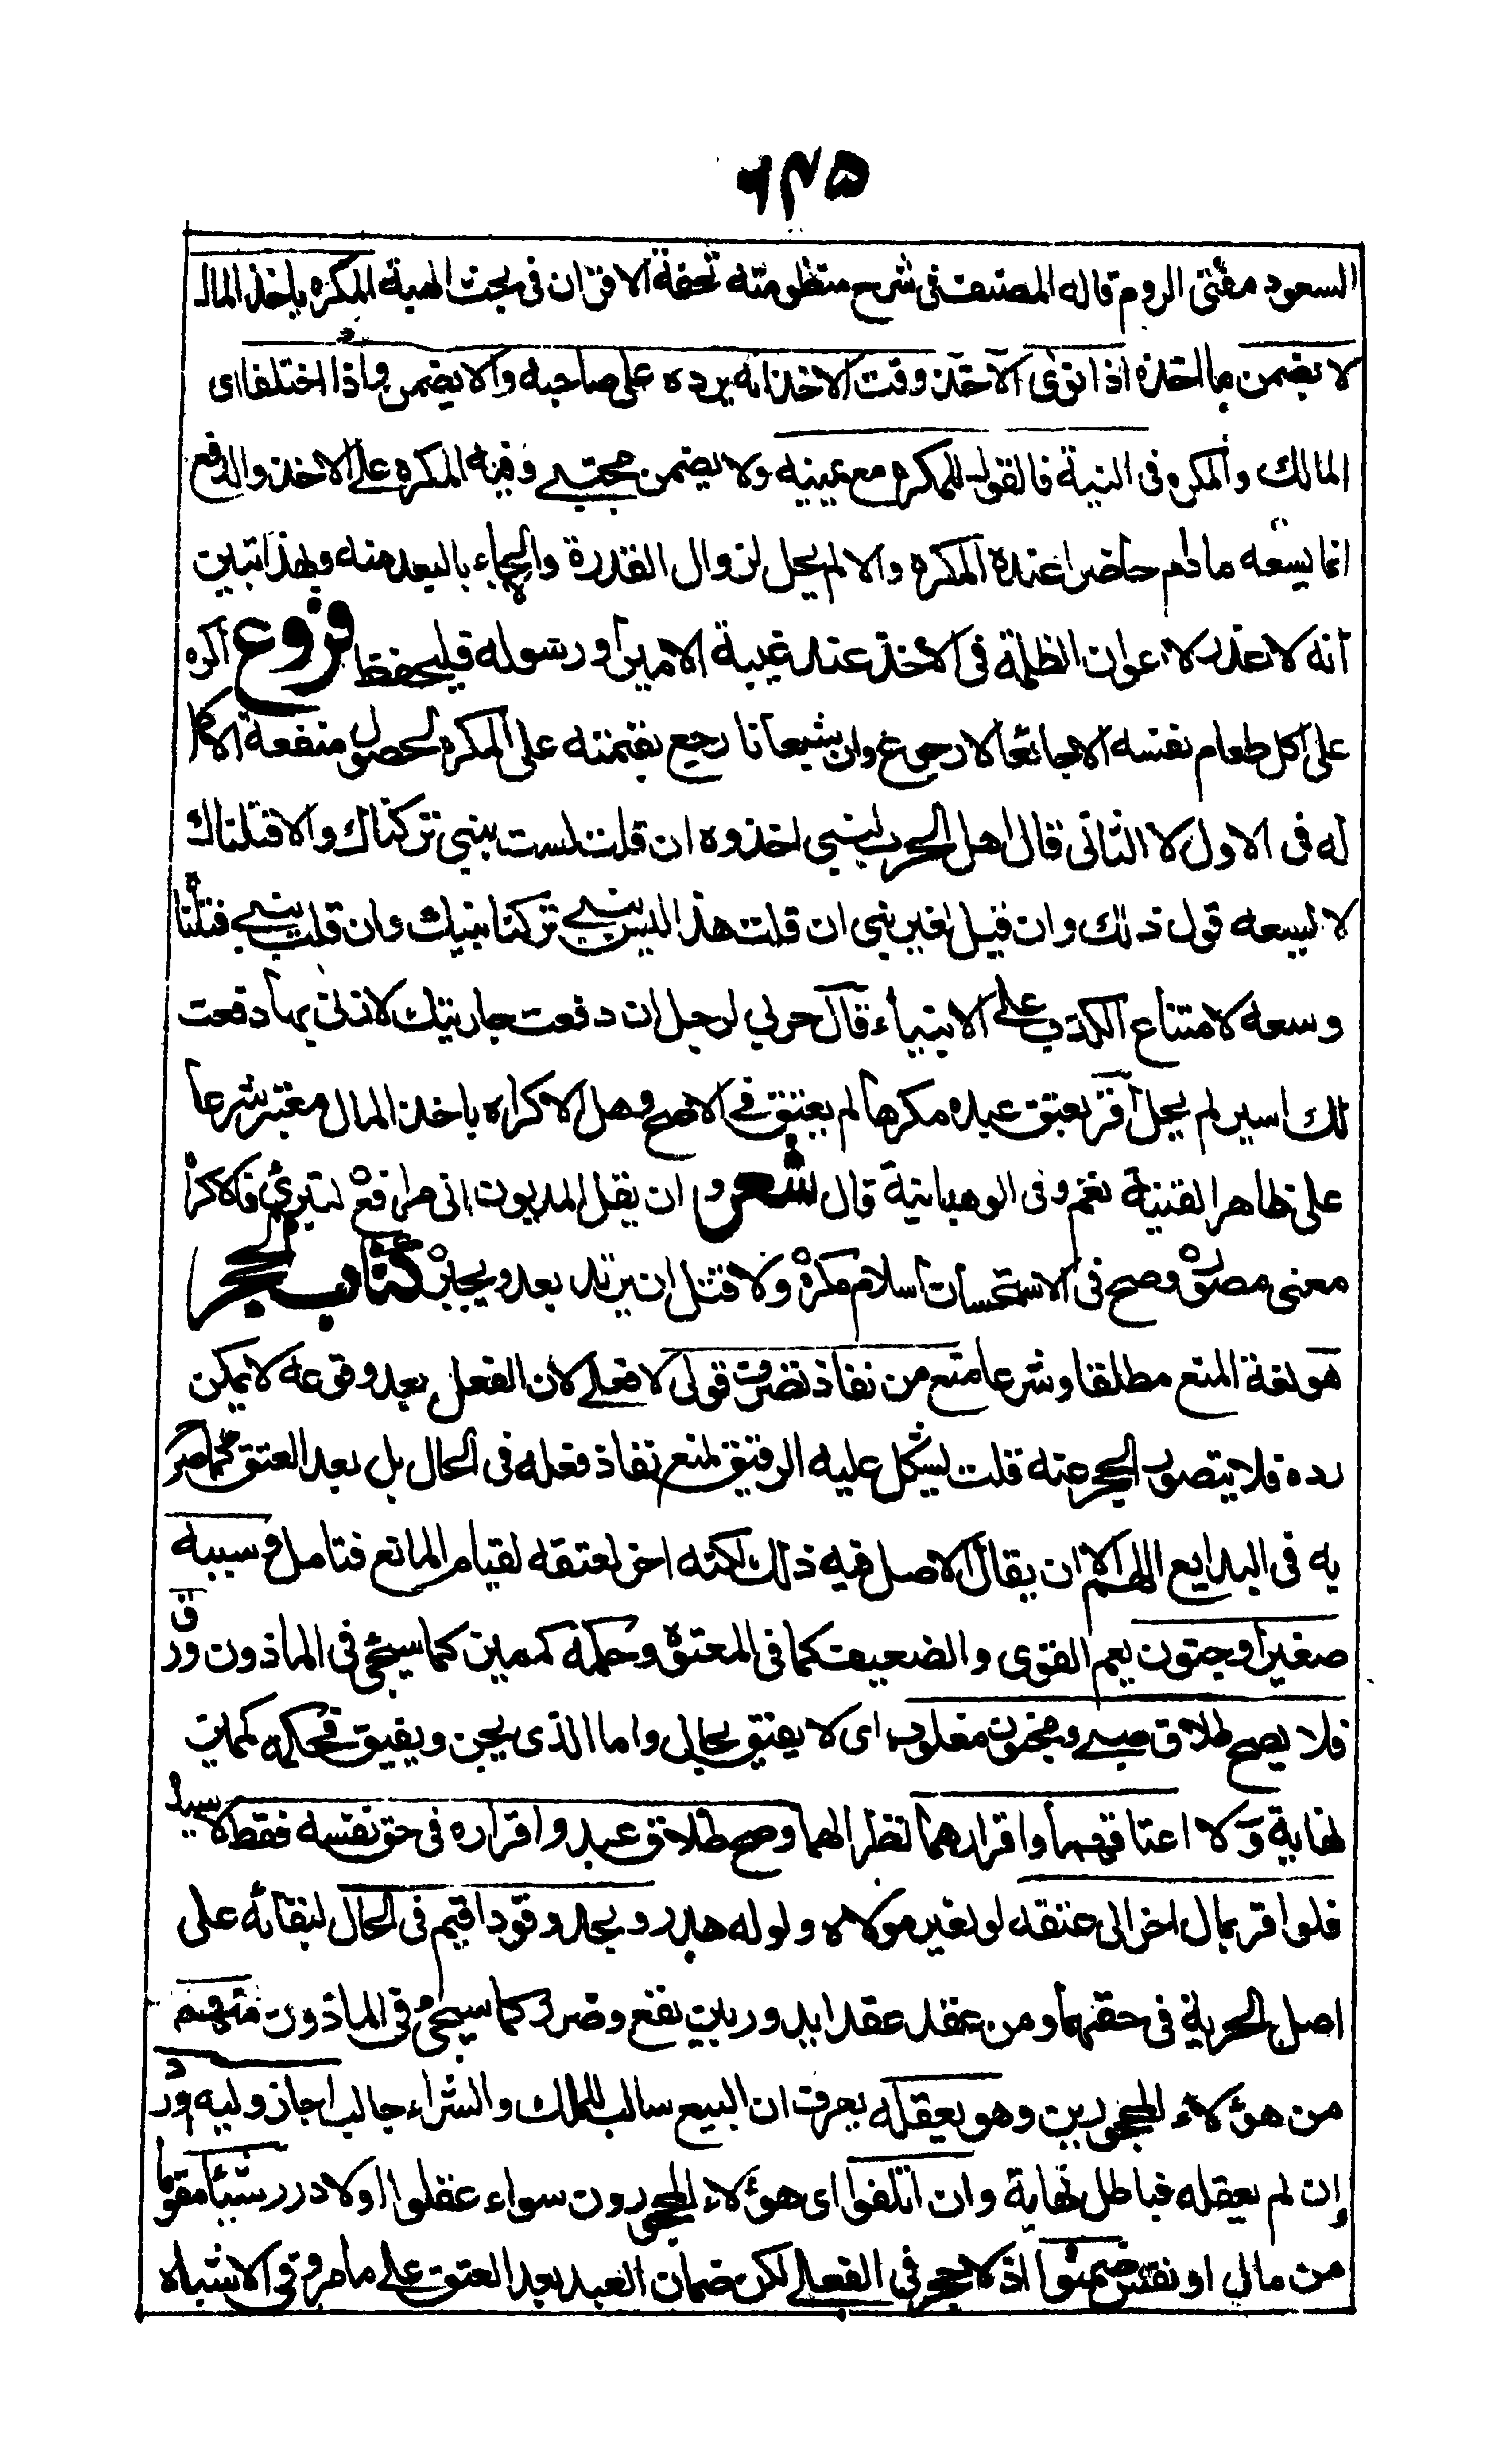 ٦٣٥
السعود مفتى الروم قاله المصنف فى شرح منظومته تحفة الاقران فى بحث الهبة المكره ياخذ المال
لا يضمن ما اخذه اذا نوى الآخذ وقت الاخذ انه يرده على صاحبه والا يضمن واذا اختلفا اى
المالك والمكره فى النية فالقول للمكره مع يمينه ولا يضمن مجتبى وفيه المكره على الاخذ والدفع
انما يسعه مادام حاضرا عنده المكره والا لم يحل لزوال القدرة والالجاء بالبعد منه وبهذا تبين
انه لا عذر لاعوان الظلمة فى الاخذ عند غيبة الامير او رسوله فليحفظ فروع اكره
على اكل طعام نفسه ان جائعا لا رجوع وان شبعانا رجع بقيمته على المكره لحصول منفعة الاكل
له فى الاول لا الثانى قال اهل الحرب لنبي اخذوه ان قلت لست بنبي تركناك والا قتلناك
لا يسعه قول ذلك وان قيل لغير نبي ان قلت هذا ليس بنبي تركنا نبيك وان قلت نبي قتلناه
وسعه لامتناع الكذب على الانبياء قال حربي لرجل ان دفعت جاريتك لازنى بها دفعت
لك اسير لم يحل اقر بعتق عبده مكرها لم يعتق في الاصح وهل الاكراه باخذ المال معتبر شرعا
على ظاهر القنية نعم وفى الوهبانية قال شعر وان يقل المديون انى مرافع لتبرئ فالاكراه
معنى مصور وصح فى الاستحسان اسلام مكره ولا قتل ان يرتد بعد ويجبر كتاب الحجر
هو لغة المنع مطلقا وشرعا منع من نفاذ تصرف قولى لا فعلي لان الفعل بعد وقوعه لا يمكن
رده فلا يتصور الحجر عنه قلت يشكل عليه الرقيق لمنع نفاذ فعله فى الحال بل بعد العتق كما صرح
به فى البدايع اللهم الا ان يقال الاصل فيه ذلك لكنه اخر لعتقه لقيام المانع فتامل وسببه
صغر او جنون يعم القوى والضعيف كما فى المعتوه وحكمه كمميز كما سيجئ فى الماذون ورق
فلا يصح طلاق صبي ومجنون مغلوب اى لا يفيق بحال واما الذى يجن ويفيق فحكمه كمميز
نهاية ولا اعتاقهما واقرارهما نظرا لهما وصح طلاق عبد واقراره فى حق نفسه فقط لا سيده
فلو اقر بمال اخر الى عتقه لو لغير مولاه ولو له هدر وبحد وقود اقيم فى الحال لبقائه على
اصل الحرية فى حقهما ومن عقد عقدا يدور بين نفع وضرر كما سيجئ فى الماذون منهم
من هؤلاء المحجورين وهو يعقله يعرف ان البيع سالب للملك والشراء جالب اجاز وليه او رد
وان لم يعقله فباطل نهاية وان اتلفوا اى هؤلاء المحجورون سواء عقلوا اولا درر شيئا مقوما
من مال او نفس ضمنوا اذ لا حجر في الفعلي لكن ضمان العبد بعد العتق على ما مر وفى الاشباه